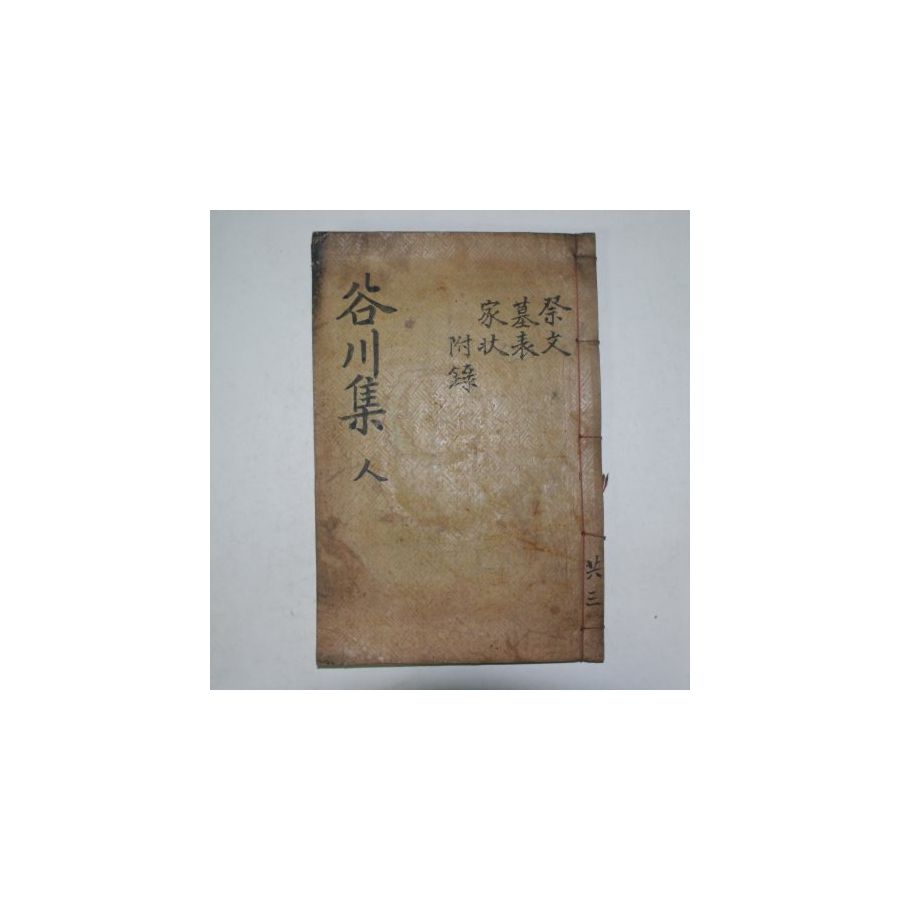 祭文
墓表
家状
附錄
谷川集 人
共三